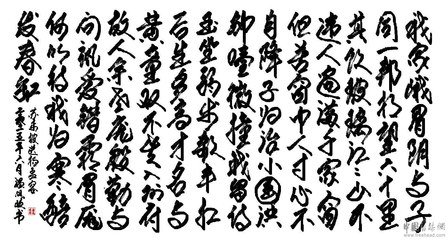 我家峨眉阴与子
同一邦相望六十里
共饮玻璃江江山不
违人遍满千家窗
但苦窗中人寸心不
自降子归治小国洪
钟噎微撞我留侍
玉坐弱步欹丰扛
后生多高才名与
黄童双不肯入州府
故人余老庞殷勤与
问讯爱惜霜眉厖
何以待我归寒醅
发春缸
苏轼 送杨孟容
五年六月 书